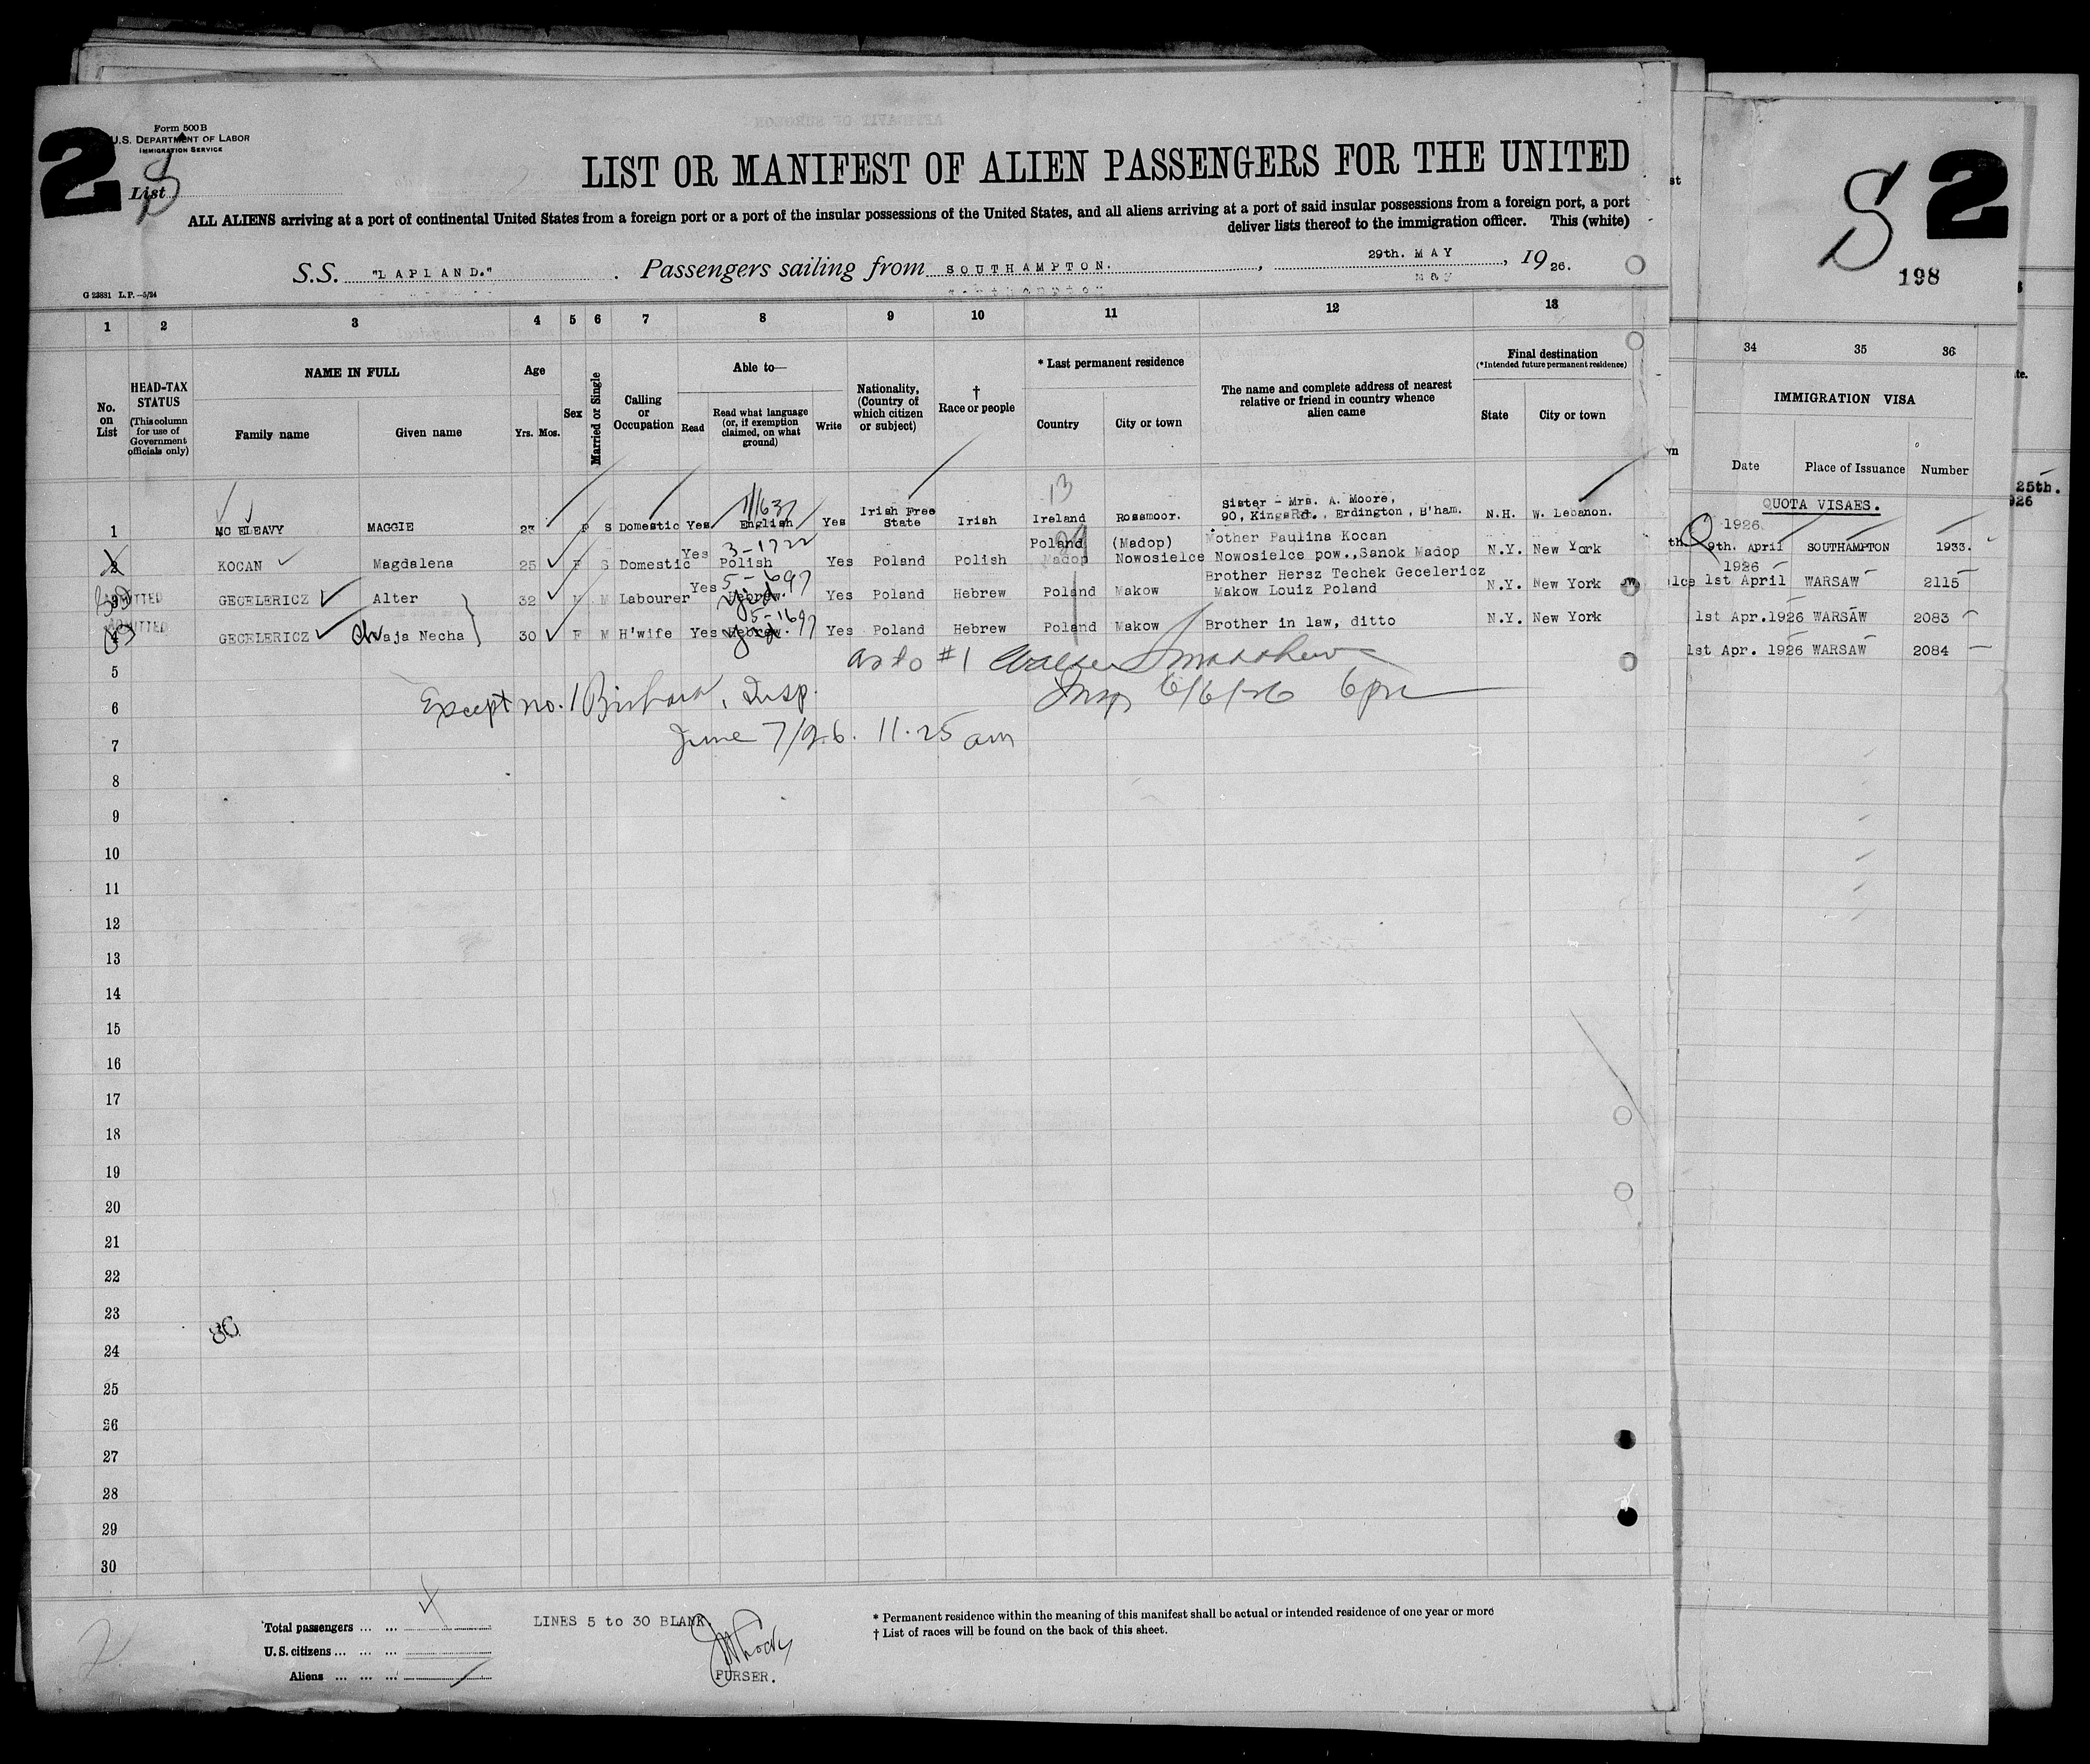 2
Form 500B
U.S. DEPARTMENT OF LABOR
IMMIGRATION SERVICE
List
LIST OR MANIFEST OF ALIEN PASSENGERS FOR THE UNITED
ALL ALIENS arriving at a port of continental United States from a foreign port or a port of the insular possessions of the United States, and all aliens arriving at a port of said insular possessions from a foreign port, a port
deliver lists thereof to the immigration officer. This (white)
S.S. "LAPLAND." Passengers sailing from SOUTHAMPTON. , 29th. MAY , 1926.
G 23831 L.P.—5/24
1 2 3 4 5 6 7 8 9 10 11 12 13
No. on List
HEAD-TAX STATUS
(This column for use of Government officials only)
NAME IN FULL
Family name Given name
Age
Yrs. Mos.
Sex
Married or Single
Calling or Occupation
Able to—
Read
Read what language (or, if exemption claimed, on what ground)
Write
Nationality, (Country of which citizen or subject)
† Race or people
* Last permanent residence
Country City or town
The name and complete address of nearest relative or friend in country whence alien came
Final destination
(*Intended future permanent residence)
State City or town
13
1 MC ELEAVY MAGGIE 23 F S Domestic Yes English Yes Irish Free State Irish Ireland Rossmoor. Sister - Mrs. A. Moore, 90, Kings Rd., Erdington, B'ham. N.H. W. Lebanon.
3-1722
2 KOCAN Magdalena 25 F S Domestic Yes Polish Yes Poland Polish Poland Madop (Madop) Nowosielce Mother Paulina Kocan Nowosielce pow.,Sanok Madop N.Y. New York
5-1697
ADMITTED
3 GECELERICZ Alter 32 M M Labourer Yes Hebrew. Yid. Yes Poland Hebrew Poland Makow Brother Hersz Techek Gecelericz Makow Louiz Poland N.Y. New York
5-1697
ADMITTED
4 GECELERICZ Chaja Necha 30 F M H'wife Yes Hebrew. Yid. Yes Poland Hebrew Poland Makow Brother in law, ditto N.Y. New York
5 as to #1
Insp 6/6/26 6pm
6 Except no. 1 , Insp.
7 June 7/26. 11.25 am
8
9
10
11
12
13
14
15
16
17
18
19
20
21
22
23
24
25
26
27
28
29
30
Total passengers ... ...
U.S. citizens ... ... ...
Aliens ... ... ...
LINES 5 to 30 BLANK
PURSER.
* Permanent residence within the meaning of this manifest shall be actual or intended residence of one year or more
† List of races will be found on the back of this sheet.
S 2
198
34 35 36
IMMIGRATION VISA
Date Place of Issuance Number
QUOTA VISAES.
1926.
9th. April SOUTHAMPTON 1933.
1926
1st April WARSAW 2115
1st Apr.1926 WARSAW 2083
1st Apr. 1926 WARSAW 2084
25th.